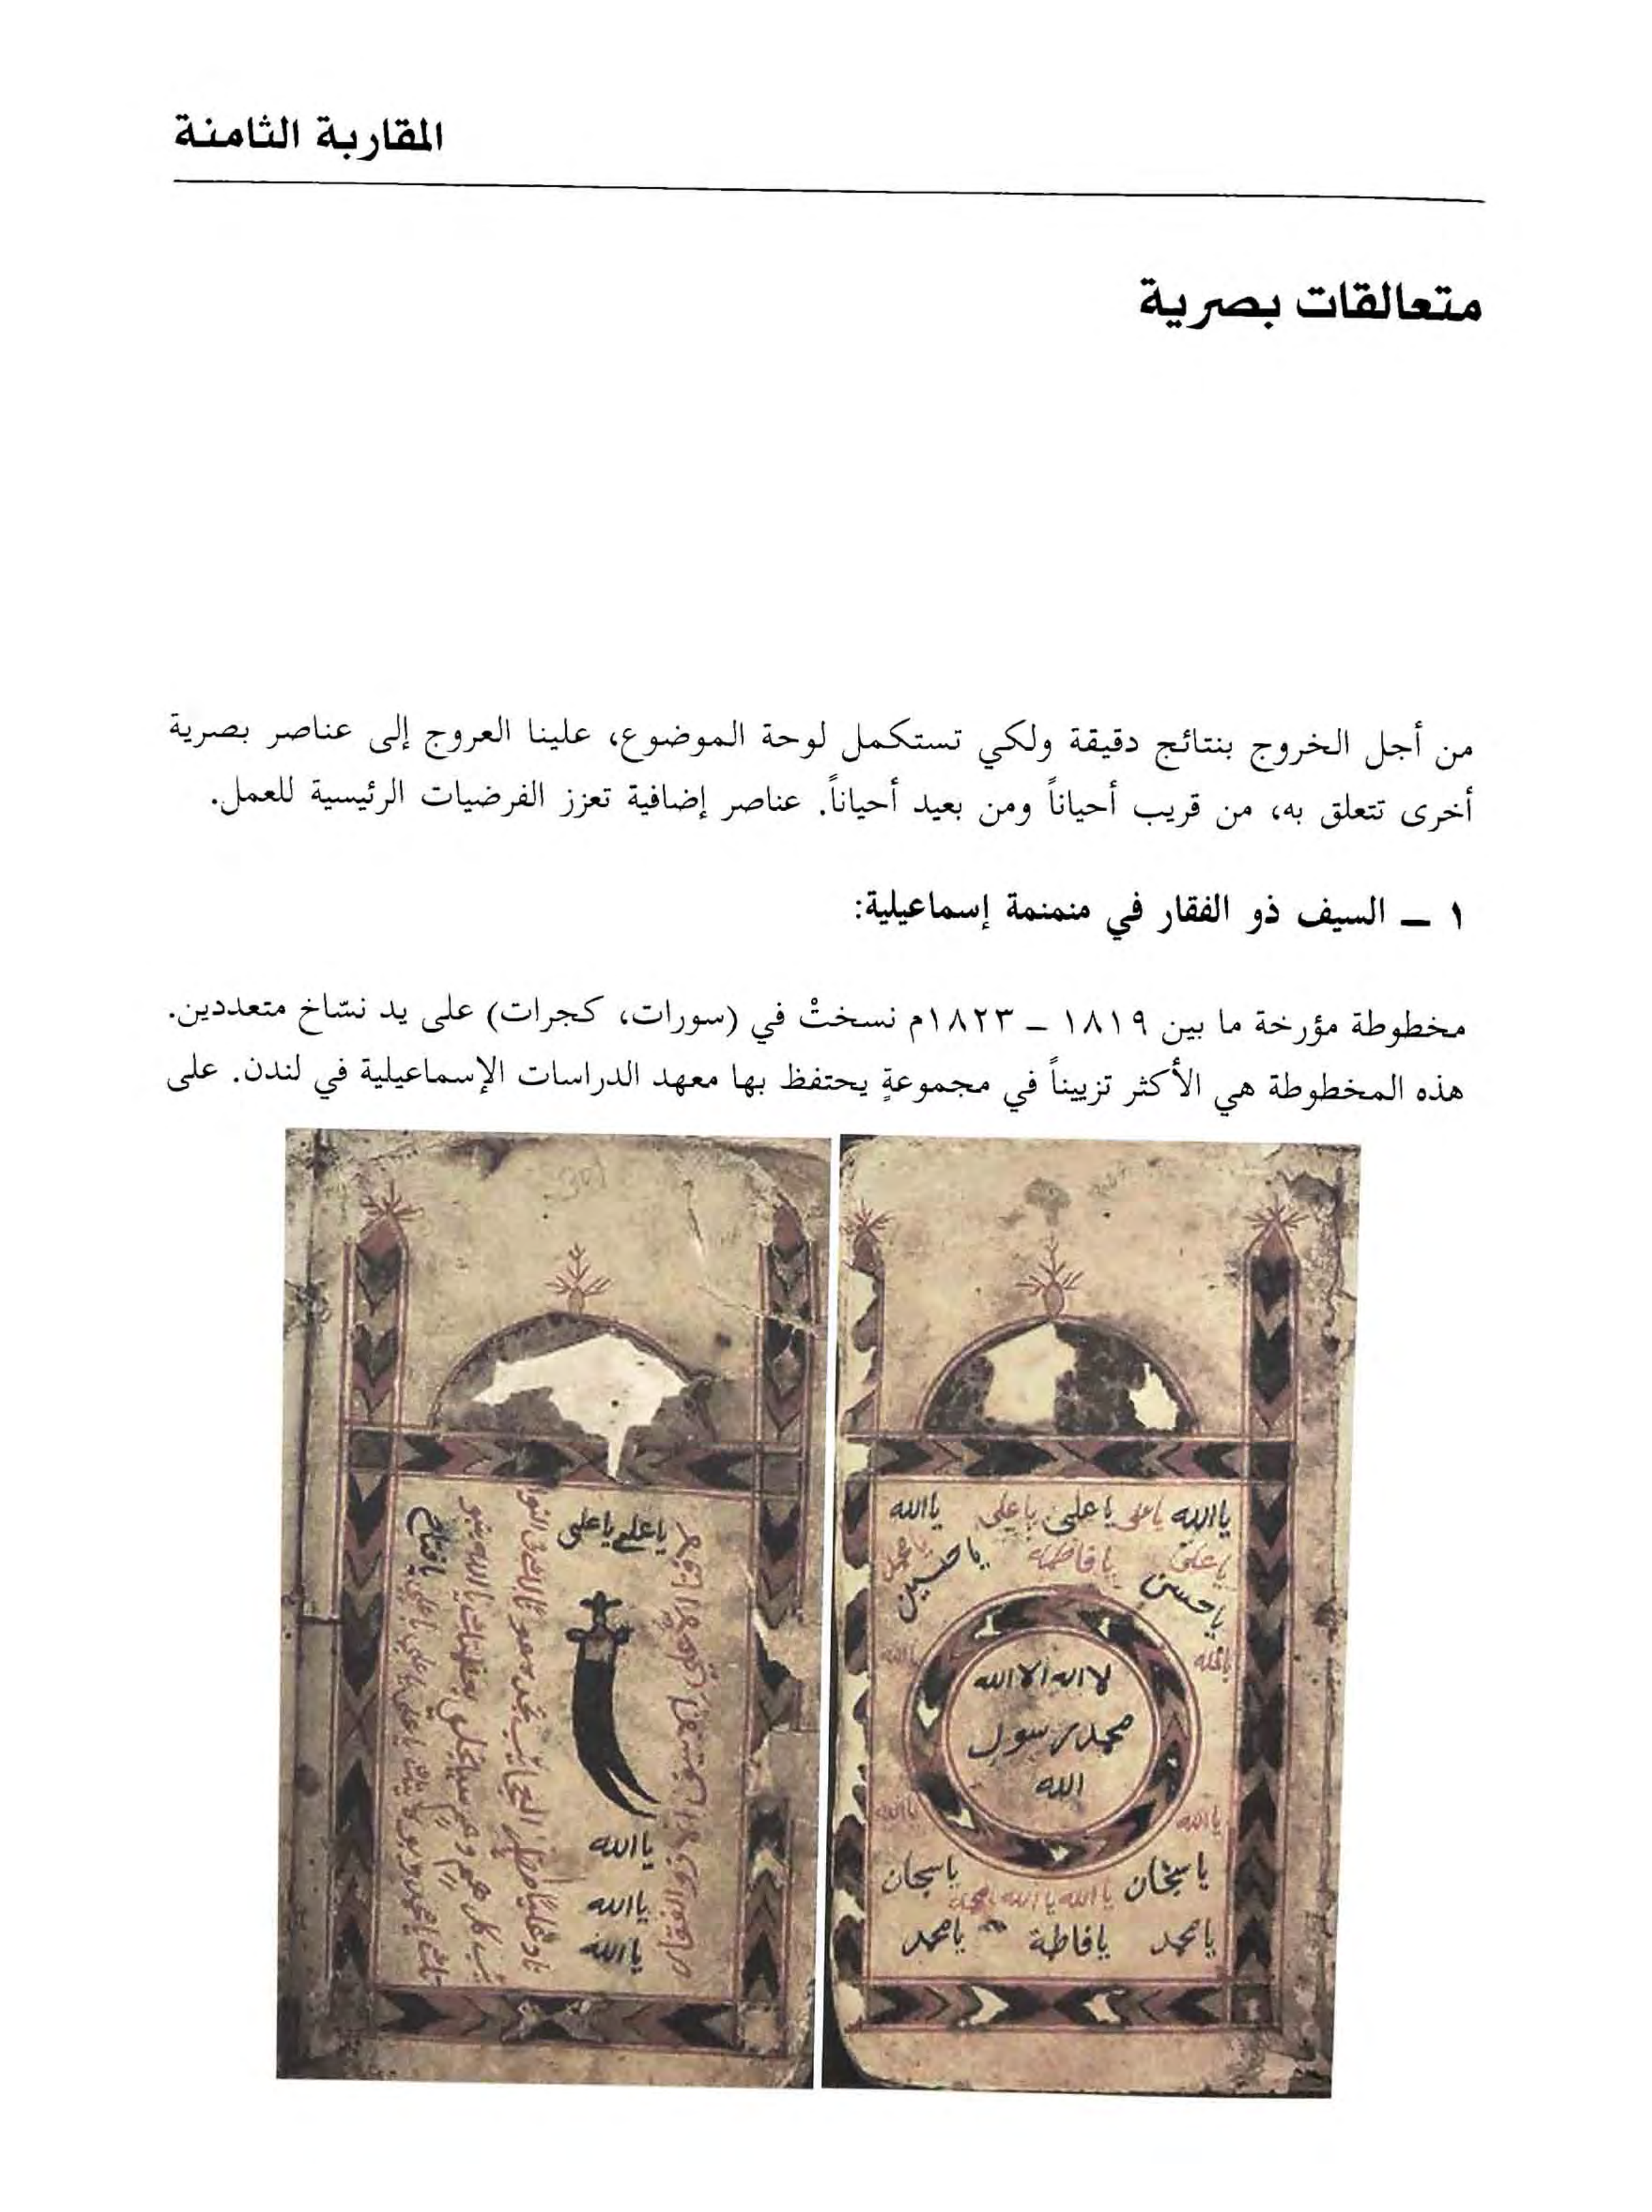 المقاربة الثامنة
متعالقات بصرية
من أجل الخروج بنتائج دقيقة ولكي تستكمل لوحة الموضوع، علينا العروج إلى عناصر بصرية
أخرى تتعلق به، من قريب أحياناً ومن بعيد أحياناً. عناصر إضافية تعزز الفرضيات الرئيسية للعمل.
١ – السيف ذو الفقار في منمنمة إسماعيلية:
مخطوطة مؤرخة ما بين ١٨١٩ – ١٨٢٣م نسختْ في (سورات، كجرات) على يد نسّاخ متعددين.
هذه المخطوطة هي الأكثر تزييناً في مجموعةٍ يحتفظ بها معهد الدراسات الإسماعيلية في لندن. على
يا الله يا علي يا علي يا علي يا الله
يا علي يا فاطمه يا محمد
يا حسن يا حسين
يا الله
لا اله الا الله
محمد رسول
الله
يا الله يا الله
يا سبحان يا سبحان
يا محمد يا فاطمة يا محمد
يا علي يا علي
يا الله
يا الله
يا الله
يا فتاح